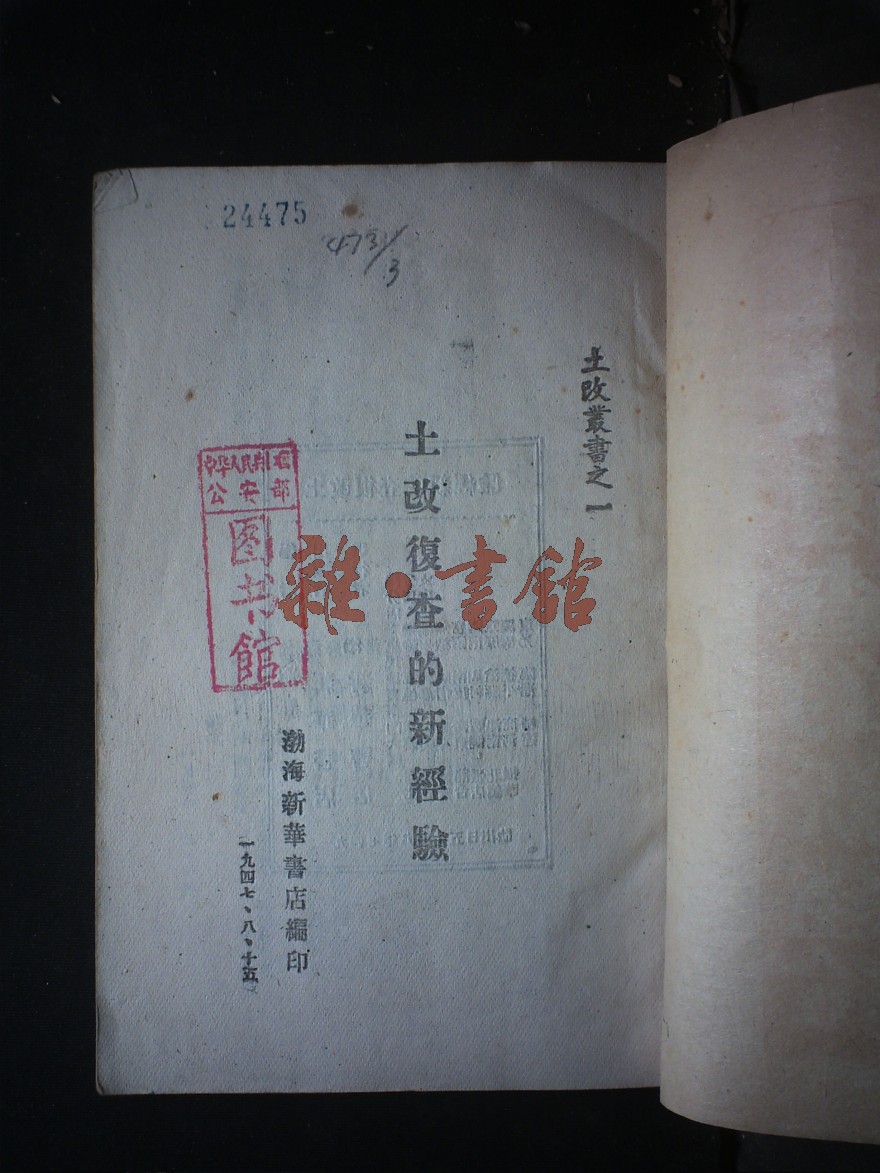 24475
473/3
土改叢書之一
土改復查的新經驗
雜·書館
中华人民共和国
公安部
图书馆
渤海新華書店編印
一九四七、八、十五